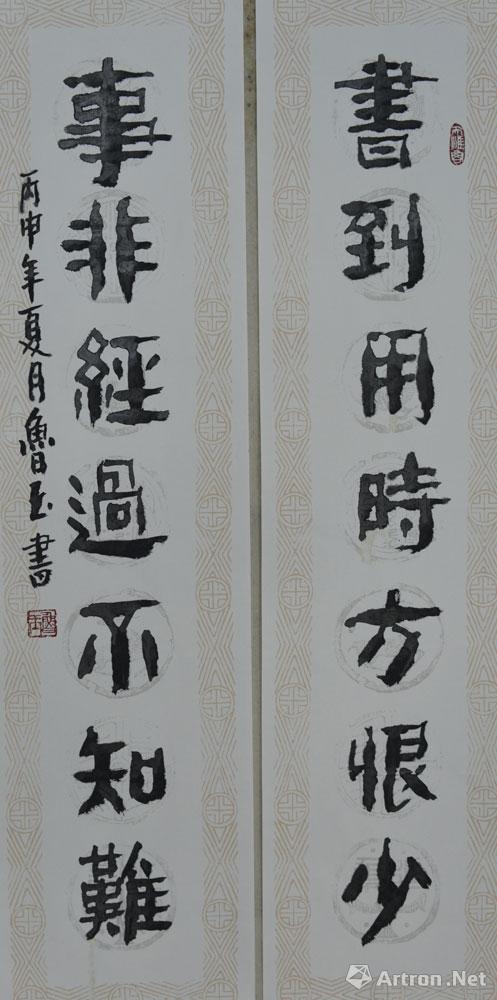 書到用時方恨少
事非經過不知難
丙申年夏月魯玉書
Artron.Net